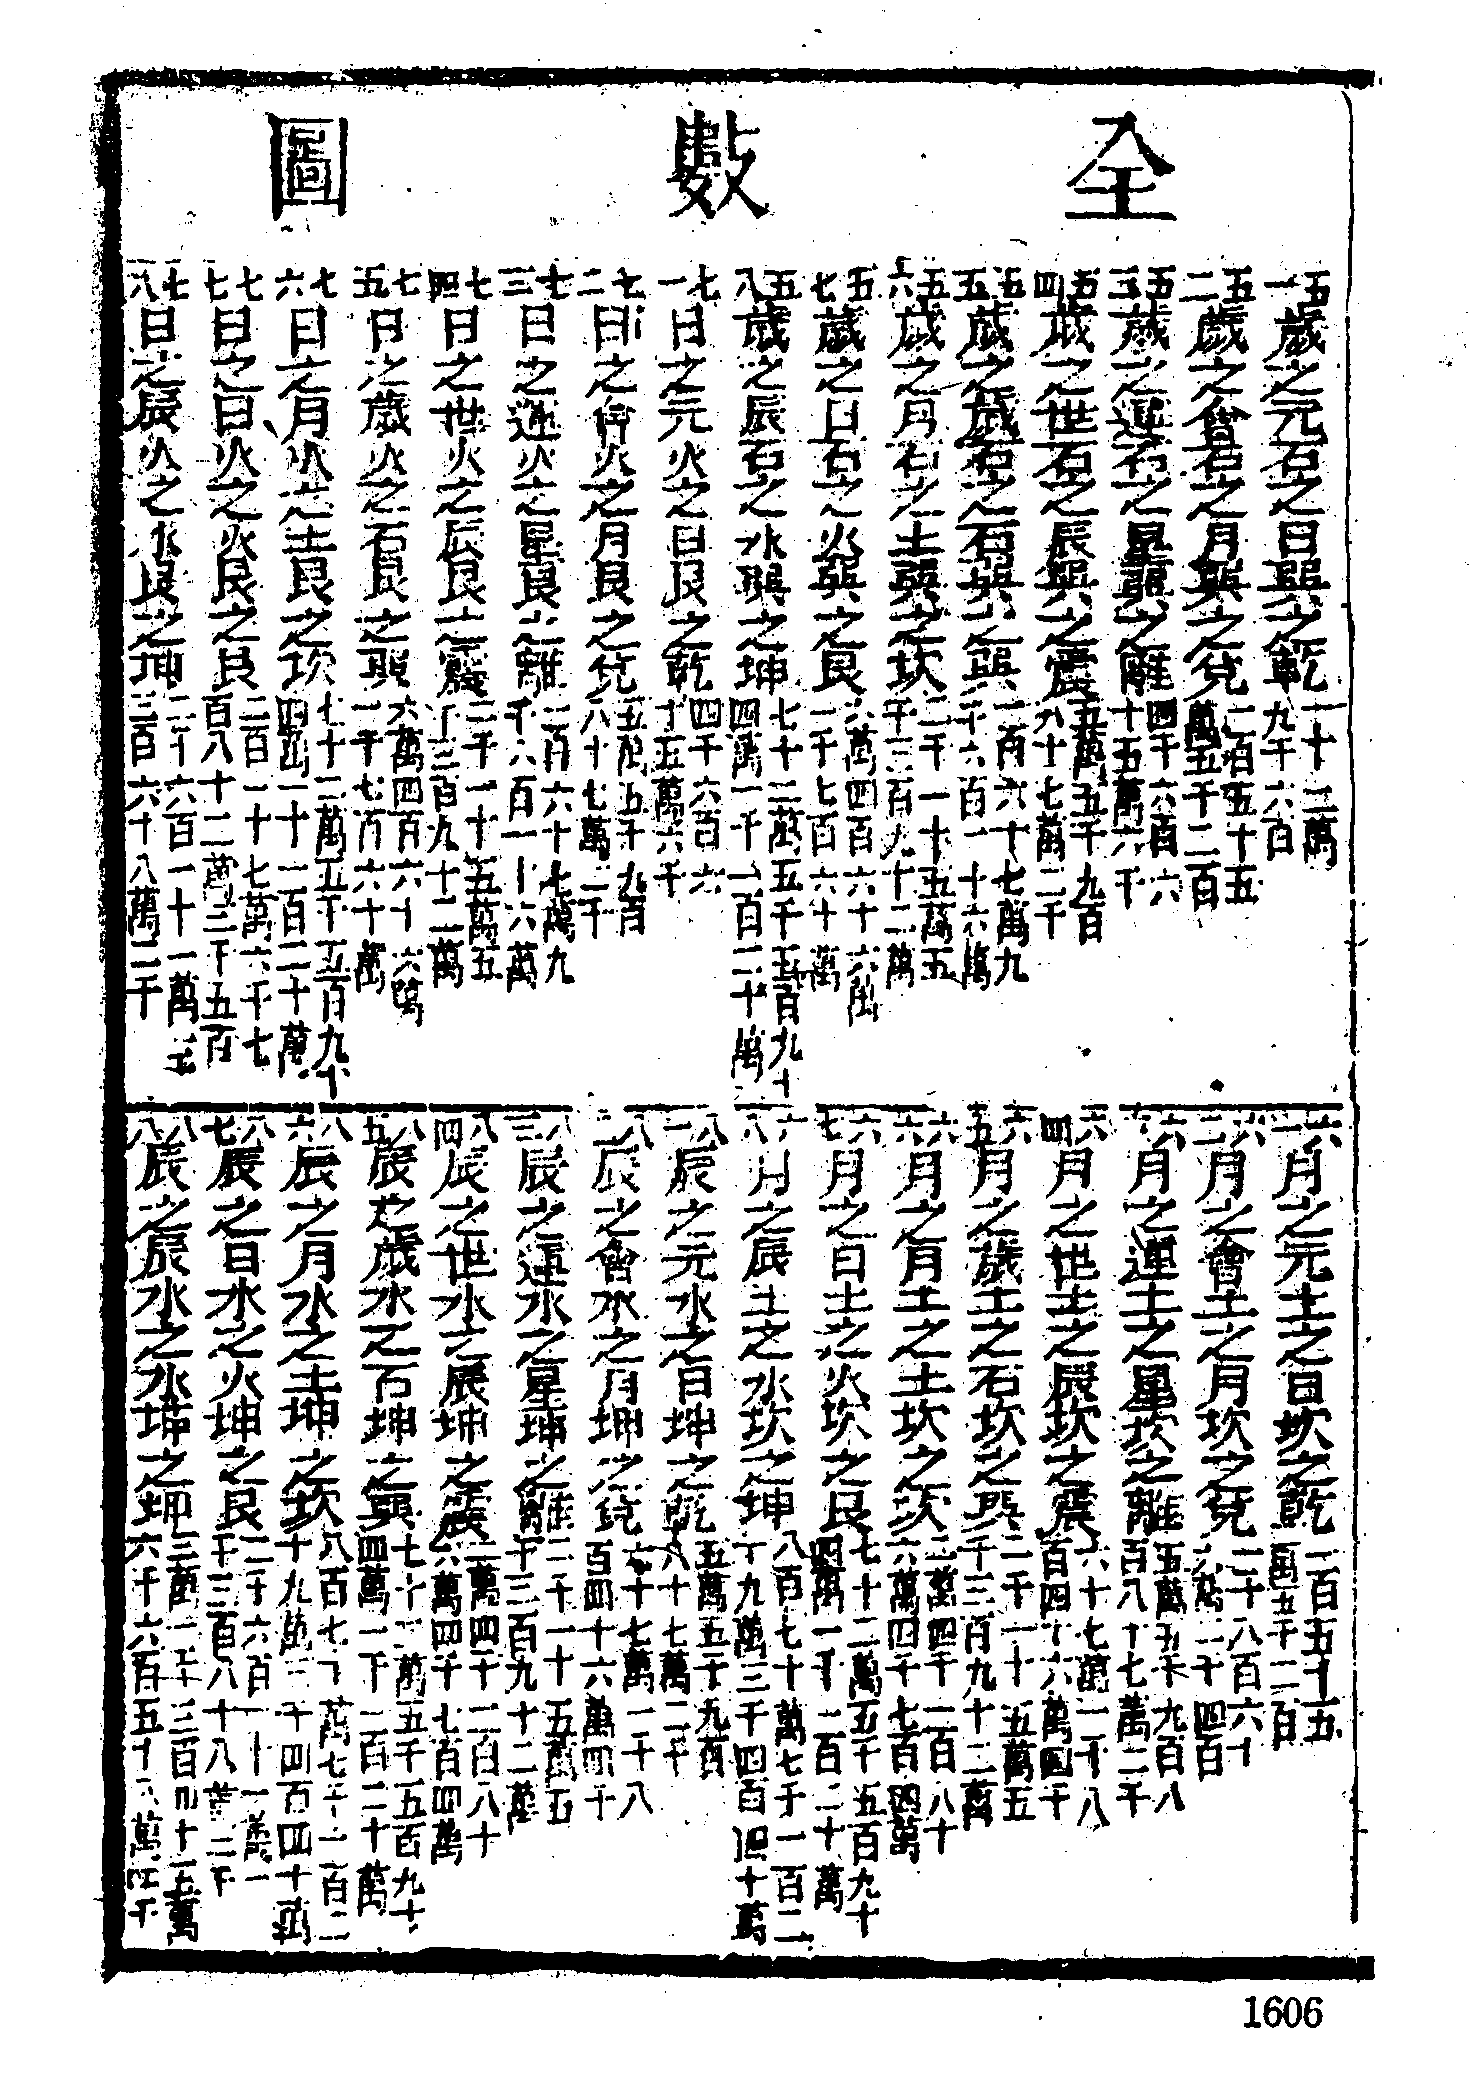 全數圖
五一歲之元石之日巽之乾一十二萬九千六百
五二歲之會石之月巽之兌一百五十五萬五千二百
五三歲之運石之星巽之離四千六百六十五萬六千
五四歲之世石之辰巽之震五萬五千九百八十七萬二千
五五歲之歲石之石巽之巽一百六十七萬九千六百一十六萬
五六歲之月石之土巽之坎二千一十五萬五千三百九十二萬
五七歲之日石之火巽之艮六萬四百六十六萬一千七百六十萬
五八歲之辰石之水巽之坤七十二萬五千五百九十四萬一千一百二十萬
七一日之元火之日艮之乾四千六百六十五萬六千
七二日之會火之月艮之兌五萬五千九百八十七萬二千
七三日之運火之星艮之離一百六十七萬九千六百一十六萬
七四日之世火之辰艮之震二千一十五萬五千三百九十二萬
七五日之歲火之石艮之巽六萬四百六十六萬一千七百六十萬
七六日之月火之土艮之坎七十二萬五千五百九十四萬一千一百二十萬
七七日之日火之火艮之艮二百一十七萬六千七百八十二萬三千五百
七八日之辰火之水艮之坤二千六百一十一萬三千三百六十八萬二千
六一月之元土之日坎之乾一百五十五萬五千二百
六二月之會土之月坎之兌一千八百六十六萬二千四百
六三月之運土之星坎之離五萬五千九百八十七萬二千
六四月之世土之辰坎之震六十七萬一千八百四十六萬四千
六五月之歲土之石坎之巽二千一十五萬五千三百九十二萬
六六月之月土之土坎之坎二萬四千一百八十六萬四千七百四萬
六七月之日土之火坎之艮七十二萬五千五百九十四萬一千一百二十萬
六八月之辰土之水坎之坤八百七十萬七千一百二十九萬三千四百四十萬
八一辰之元水之日坤之乾五萬五千九百八十七萬二千
八二辰之會水之月坤之兌六十七萬一千八百四十六萬四千
八三辰之運水之星坤之離二千一十五萬五千三百九十二萬
八四辰之世水之辰坤之震二萬四千一百八十六萬四千七百四萬
八五辰之歲水之石坤之巽七十二萬五千五百九十四萬一千一百二十萬
八六辰之月水之土坤之坎八百七十萬七千一百二十九萬三千四百四十萬
八七辰之日水之火坤之艮二千六百一十一萬一千三百八十八萬二千
八八辰之辰水之水坤之坤三萬一千三百四十五萬六千六百五十八萬四千
1606